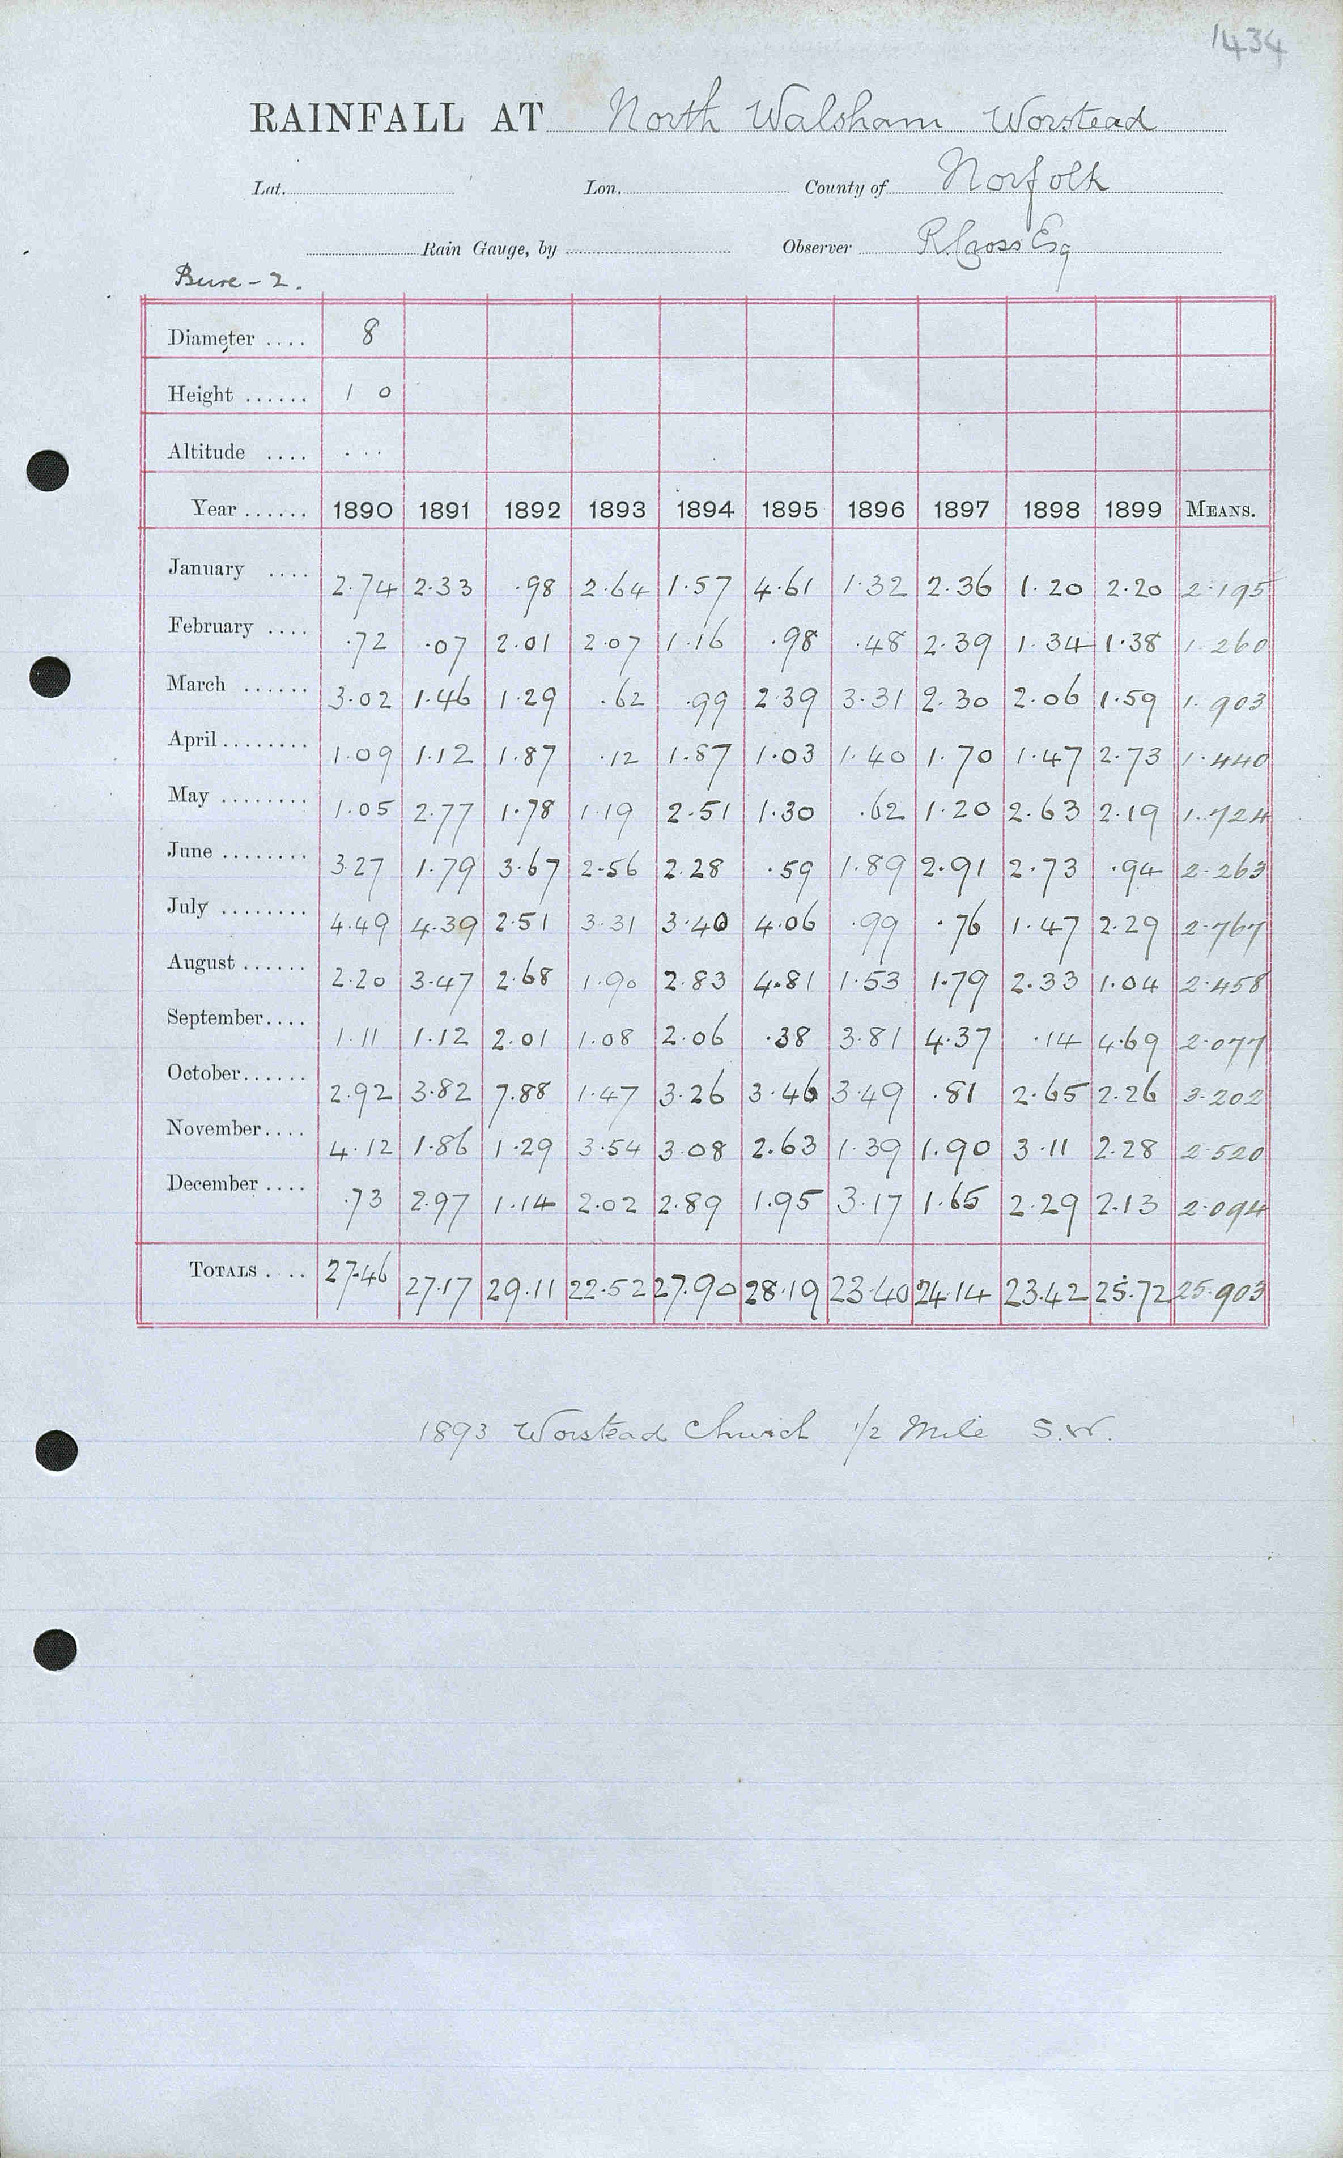 1434
RAINFALL AT North Walsham Worstead
Lat. Lon. County of Norfolk
Rain Gauge, by Observer R. Cross Esq
Bure - 2.
Diameter .... 8
Height ...... 1 0
Altitude .... . . .
Year ...... 1890 1891 1892 1893 1894 1895 1896 1897 1898 1899 MEANS.
January .... 2.74 2.33 .98 2.64 1.57 4.61 1.32 2.36 1.20 2.20 2.195
February .... .72 .07 2.01 2.07 1.16 .98 .48 2.39 1.34 1.38 1.260
March ...... 3.02 1.46 1.29 .62 .99 2.39 3.31 2.30 2.06 1.59 1.903
April ........ 1.09 1.12 1.87 .12 1.87 1.03 1.40 1.70 1.47 2.73 1.440
May ........ 1.05 2.77 1.78 1.19 2.51 1.30 .62 1.20 2.63 2.19 1.724
June ........ 3.27 1.79 3.67 2.56 2.28 .59 1.89 2.91 2.73 .94 2.263
July ........ 4.49 4.39 2.51 3.31 3.40 4.06 .99 .76 1.47 2.29 2.767
August ...... 2.20 3.47 2.68 1.90 2.83 4.81 1.53 1.79 2.33 1.04 2.458
September.... 1.11 1.12 2.01 1.08 2.06 .38 3.81 4.37 .14 4.69 2.077
October...... 2.92 3.82 7.88 1.47 3.26 3.46 3.49 .81 2.65 2.26 3.202
November.... 4.12 1.86 1.29 3.54 3.08 2.63 1.39 1.90 3.11 2.28 2.520
December .... .73 2.97 1.14 2.02 2.89 1.95 3.17 1.65 2.29 2.13 2.094
TOTALS .... 27.46 27.17 29.11 22.52 27.90 28.19 23.40 24.14 23.42 25.72 25.903
1893 Worstead Church 1/2 Mile S.W.